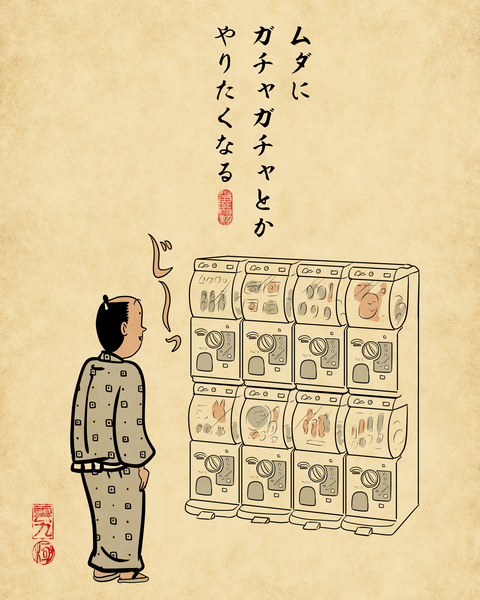 ムダに
ガチャガチャとか
やりたくなる
じーっ